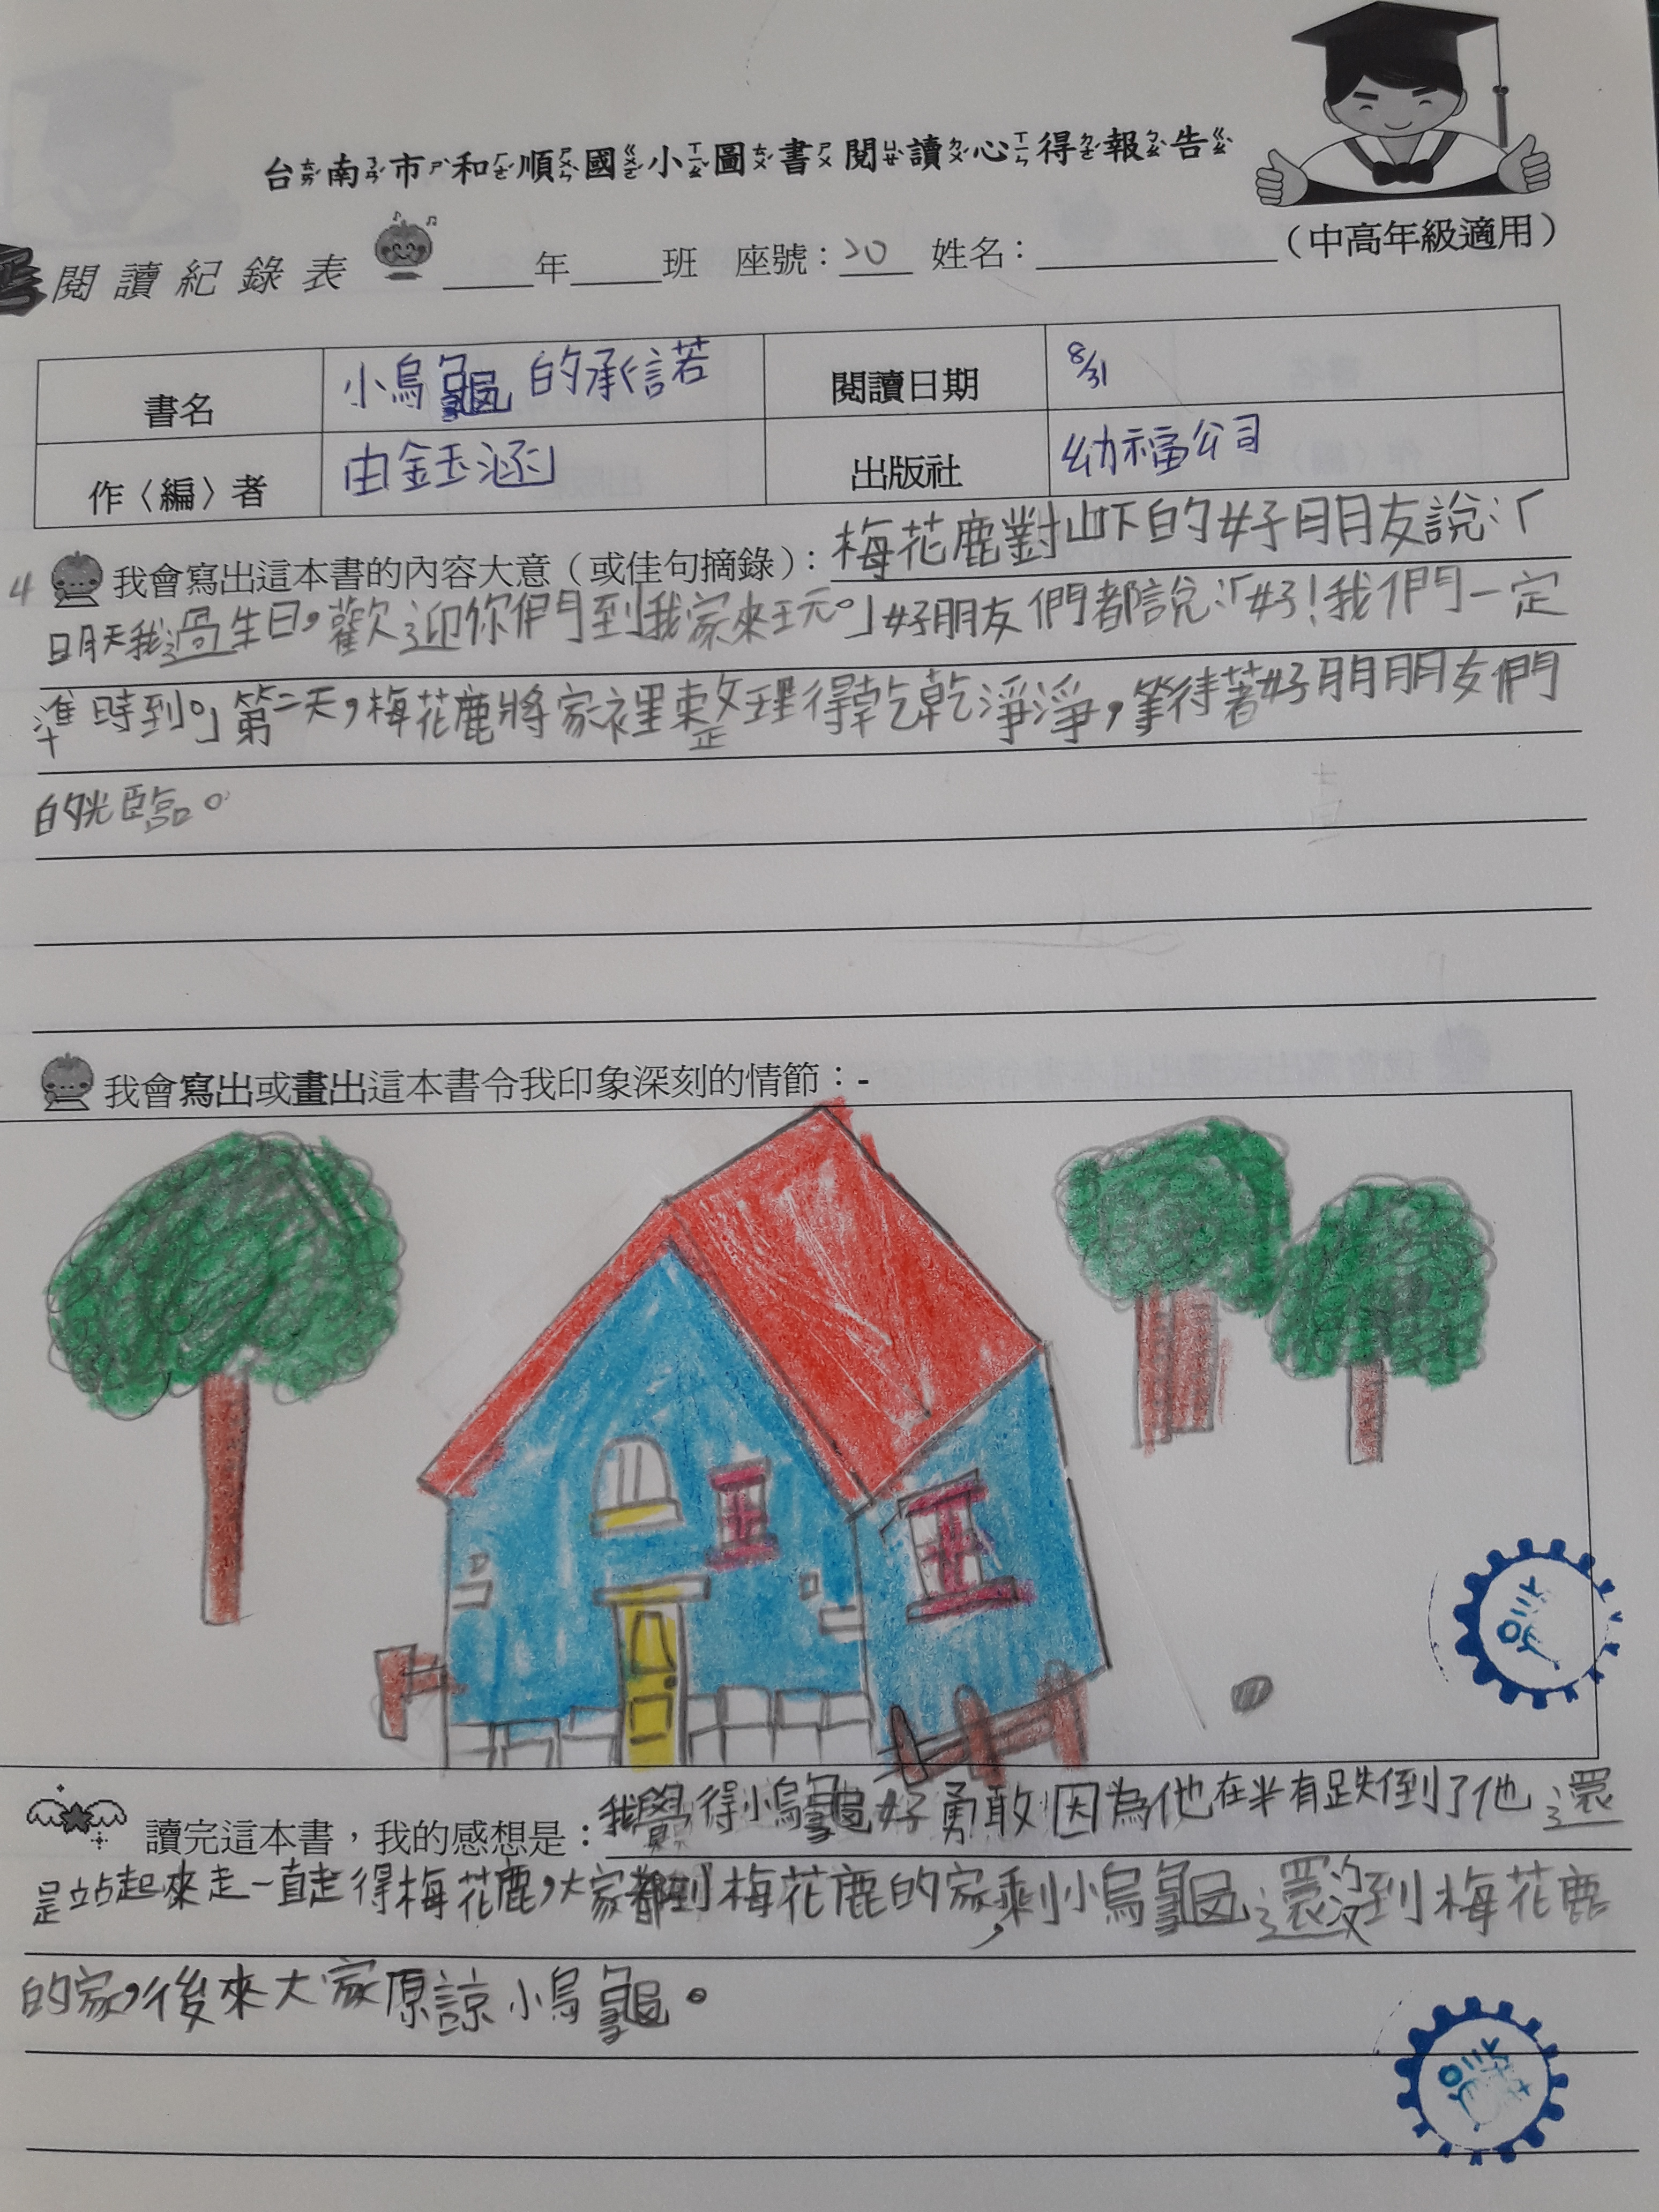 台南市和順國小圖書閱讀心得報告
（中高年級適用）
閱讀紀錄表 ____年____班 座號：20 姓名：____
書名 小烏龜的承諾 閱讀日期 8/31
作〈編〉者 由鈺涵 出版社 幼福公司
4 我會寫出這本書的內容大意（或佳句摘錄）：梅花鹿對山下的好朋友說：「
明天我過生日，歡迎你們到我家來玩。」好朋友們都說：「好！我們一定
準時到。」第二天，梅花鹿將家裡整理得乾乾淨淨，等待著好朋朋友們
的光臨。
我會寫出或畫出這本書令我印象深刻的情節：-
讀完這本書，我的感想是：我覺得小烏龜好勇敢因為他在半有跌倒了他還
是站起來走一直走得梅花鹿，大家都到梅花鹿的家，剩小烏龜還沒到梅花鹿
的家，後來大家原諒小烏龜。